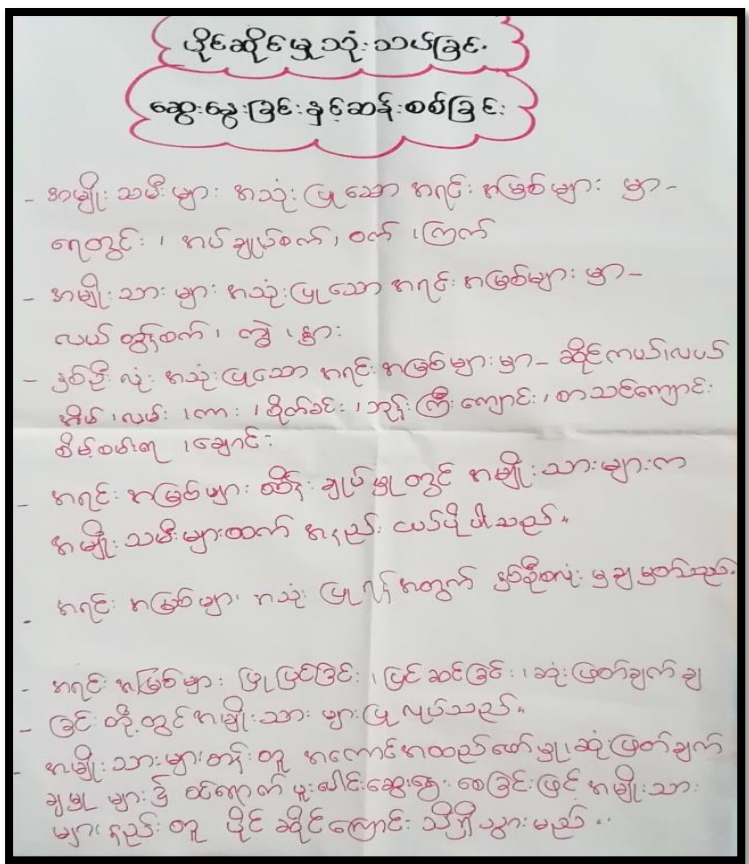 ပိုင်ဆိုင်မှု သုံးသပ်ခြင်း
ဆွေးနွေးခြင်းနှင့်ဆန်းစစ်ခြင်း
- အမျိုးသမီးများ အသုံးပြုသော အရင်းအမြစ်များ မှာ-
ရေတွင်း၊ အပ်ချုပ်စက်၊ ဝက်၊ ကြက်
- အမျိုးသားများ အသုံးပြုသော အရင်းအမြစ်များ မှာ-
လယ်ထွန်စက်၊ ကျွဲ၊ နွား
- နှစ်ဦးလုံး အသုံးပြုသော အရင်းအမြစ်များမှာ- ဆိုင်ကယ်၊ လယ်
အိမ်၊ လမ်း၊ ကား၊ စိုက်ခင်း၊ ဘုန်းကြီးကျောင်း၊ စာသင်ကျောင်း
စိမ့်စမ်းရေ၊ ချောင်း
- အရင်းအမြစ်များ ထိန်းချုပ်မှုတွင် အမျိုးသားများက
အမျိုးသမီးများထက် အနည်းငယ်ပိုပါသည်။
- အရင်းအမြစ်များ အသုံးပြုရန်အတွက် နှစ်ဦးစလုံးမှ ချမှတ်သည်.
- အရင်းအမြစ်များ ပြုပြင်ခြင်း၊ ပြင်ဆင်ခြင်း၊ ဆုံးဖြတ်ချက်ချ
- ခြင်းတို့တွင် အမျိုးသားများပြုလုပ်သည်။
- အမျိုးသားများတန်းတူ အကောင်အထည်ဖော်မှု၊ ဆုံးဖြတ်ချက်
ချမှု များ၌ ဝင်ရောက်ပူးပေါင်းဆွေးနွေးစေခြင်းဖြင့် အမျိုးသား
များနည်းတူ ပိုင်ဆိုင်ကြောင်း သိရှိသွားမည်။